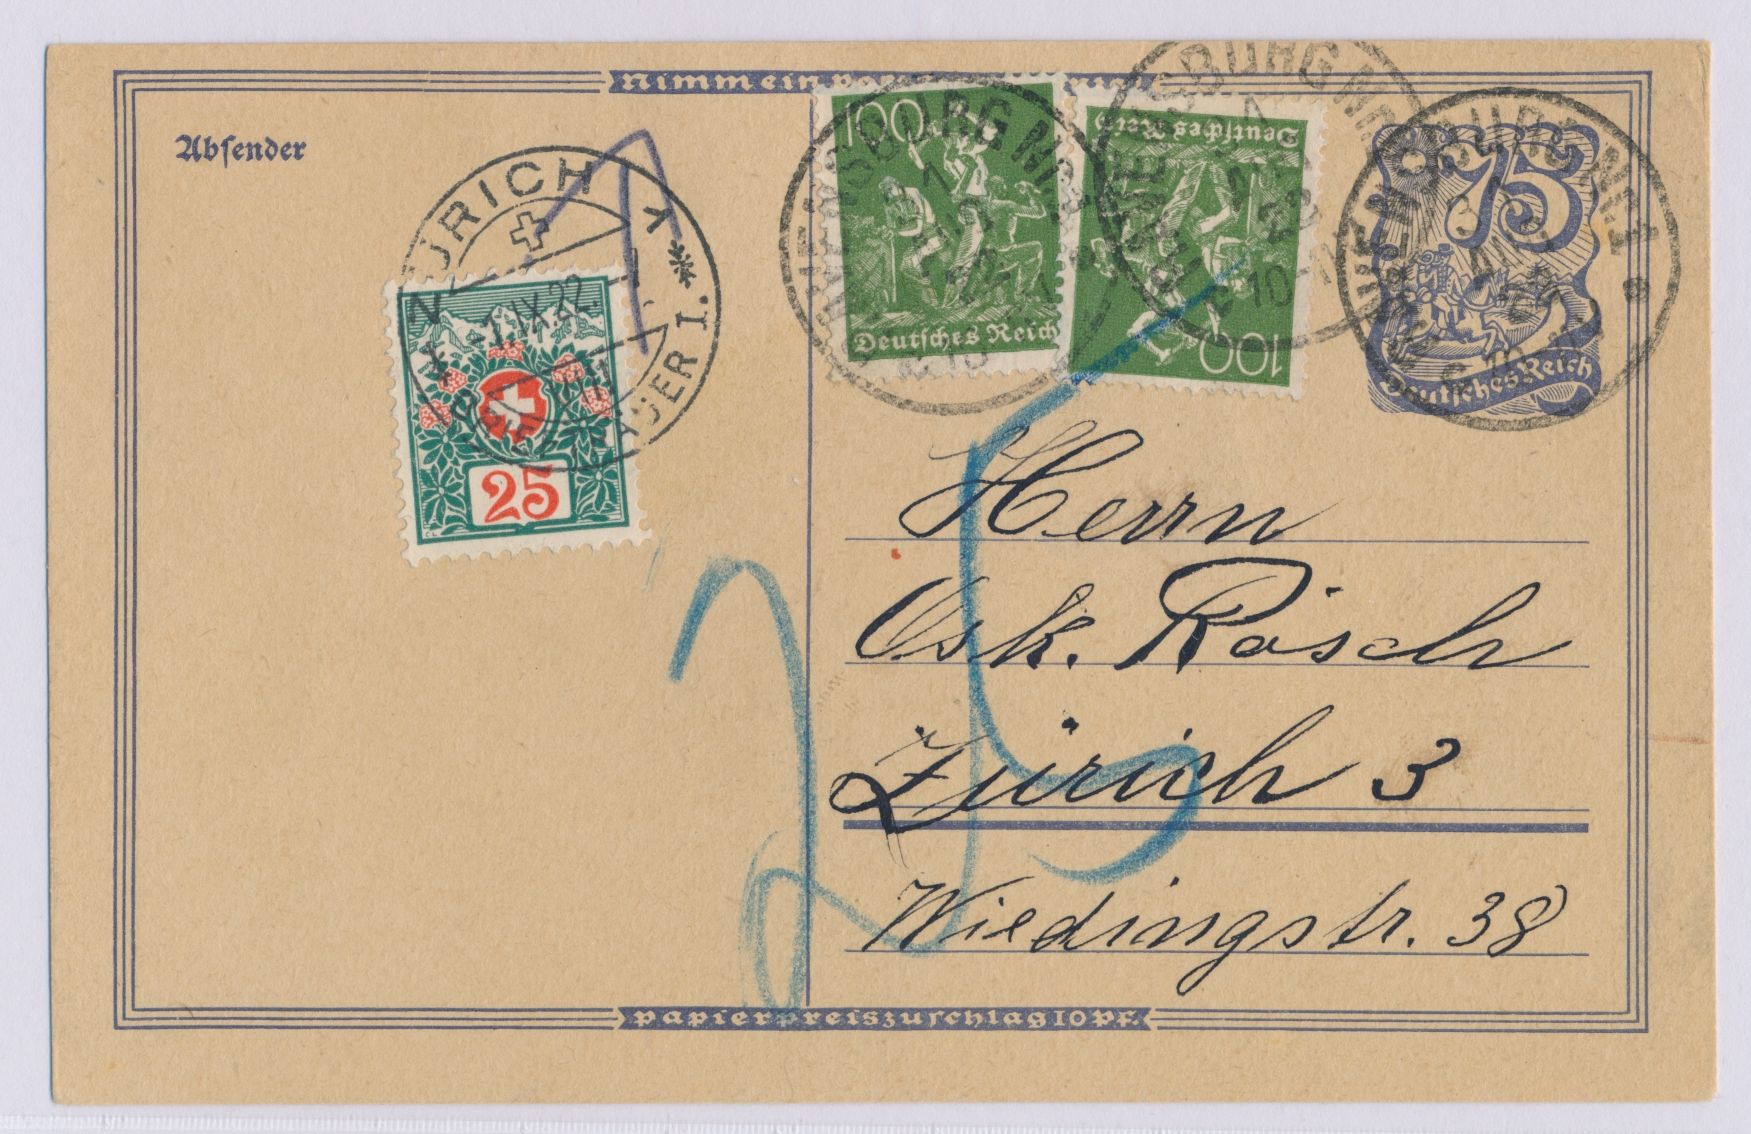 Nimm ein
Absender
ZÜRICH
-1.IX.22.
25
100
Deutsches Reich
100
Deutsches Reich
75
Deutsches Reich
25
Herrn
Osk. Rösch
Zürich 3
Wiedingstr. 38
papierpreiszuschlag 10 Pf.